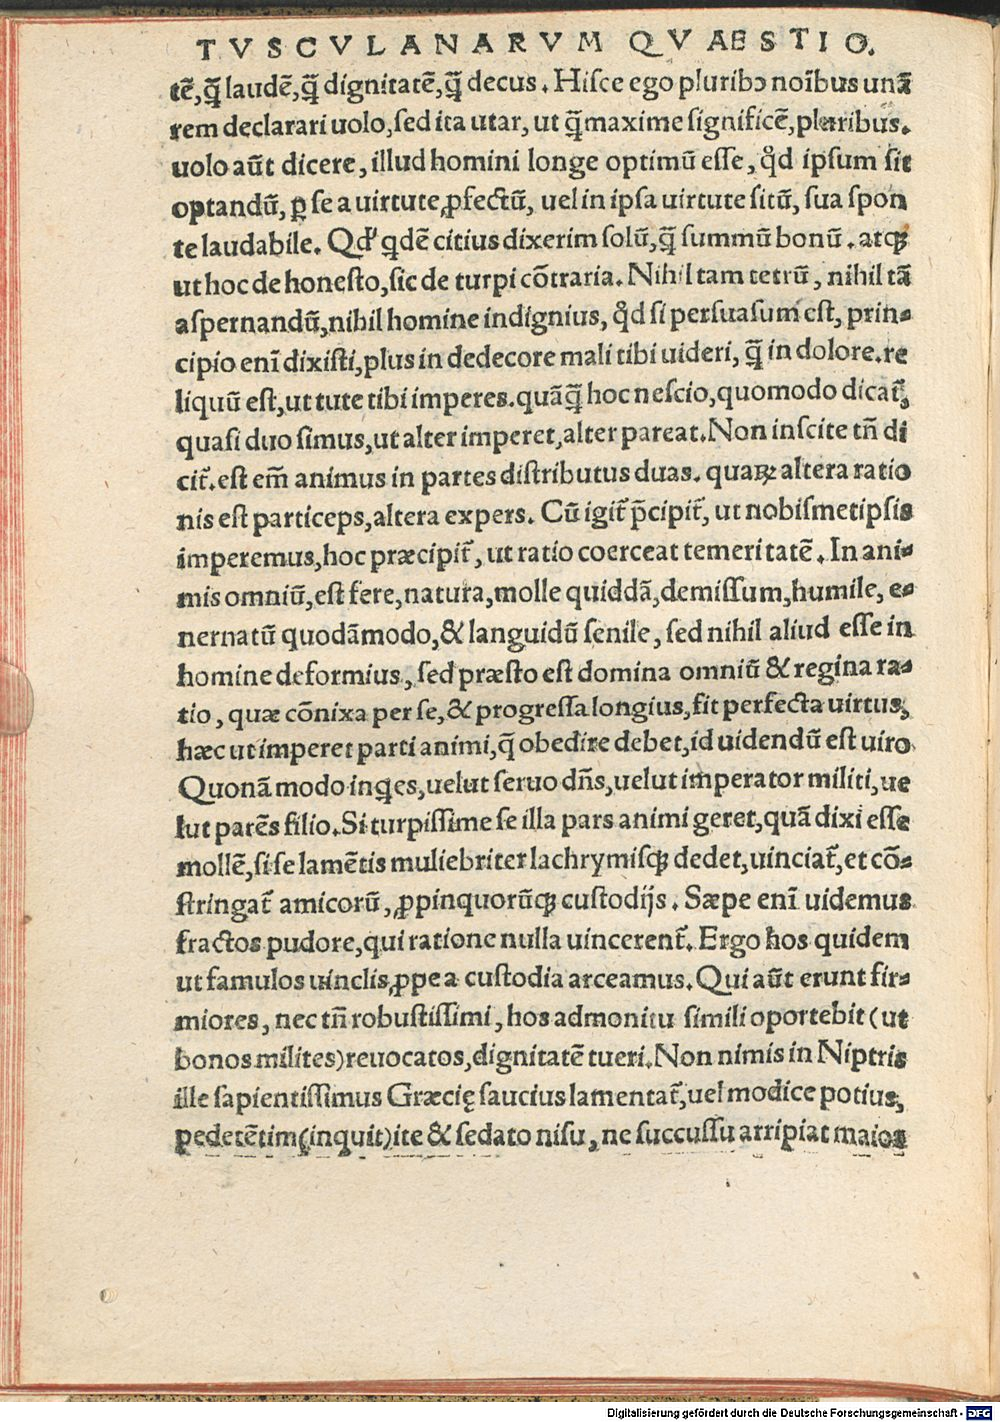 TVSCVLANARVM QVAESTIO.
tē,q̄ laudē,q̄ dignitatē,q̄ decus. Hiſce ego pluribꝰ noībus unā
rem declarari uolo,ſed ita utar, ut q̄ maxime ſignificē,pluribus.
uolo aūt dicere, illud homini longe optimū eſſe, qd̊ ipſum ſit
optandū, ꝑ ſe a uirtute ꝓfectū, uel in ipſa uirtute ſitū, ſua ſpon
te laudabile. Qdʼ qdē citius dixerim ſolū,q̄ ſummū bonū. atqꝫ
ut hoc de honeſto,ſic de turpi cōtraria. Nihil tam tetrū, nihil tā
aſpernandū,nihil homine indignius, qd̊ ſi perſuaſum eſt, prin-
cipio enī dixiſti,plus in dedecore mali tibi uideri, q̄ in dolore.re
liquū eſt,ut tute tibi imperes.quāq̄ hoc neſcio,quomodo dicat̃,
quaſi duo ſimus,ut alter imperet,alter pareat.Non inſcite tn̄ di
cit̃.eſt em̄ animus in partes diſtributus duas. quaꝝ altera ratio
nis eſt particeps,altera expers. Cū igit̃ p̄cipit̃, ut nobiſmetipſis
imperemus,hoc præcipit̃, ut ratio coerceat temeritatē. In ani-
mis omniū,eſt fere,natura,molle quiddā,demiſſum,humile, e-
neruatū quodāmodo,& languidū ſenile, ſed nihil aliud eſſe in
homine deformius, ſed præſto eſt domina omniū & regina ra-
tio, quæ cōnixa per ſe,& progreſſa longius,fit perfecta uirtus,
hæc ut imperet parti animi,q̄ obedire debet,id uidendū eſt uiro
Quonā modo inqes,uelut ſeruo dn̄s,uelut imperator militi,ue
lut parēs filio.Si turpiſſime ſe illa pars animi geret,quā dixi eſſe
mollē,ſi ſe lamētis muliebriter lachrymiſqꝫ dedet,uinciat̃,et cō-
ſtringat̃ amicorū,ꝓpinquorūqꝫ cuſtodijs. Sæpe enī uidemus
fractos pudore,qui ratione nulla uincerent̃. Ergo hos quidem
ut famulos uinclis,ꝓpe a cuſtodia arceamus.Qui aūt erunt fir-
miores, nec tn̄ robuſtiſſimi, hos admonitu ſimili oportebit(ut
bonos milites)reuocatos,dignitatē tueri.Non nimis in Niptris
ille ſapientiſſimus Græcię ſaucius lamentat̃,uel modice potius,
pedetētim(inquit)ite & ſedato niſu, ne ſuccuſſu arripiat maior
Digitalisierung gefördert durch die Deutsche Forschungsgemeinschaft - DFG